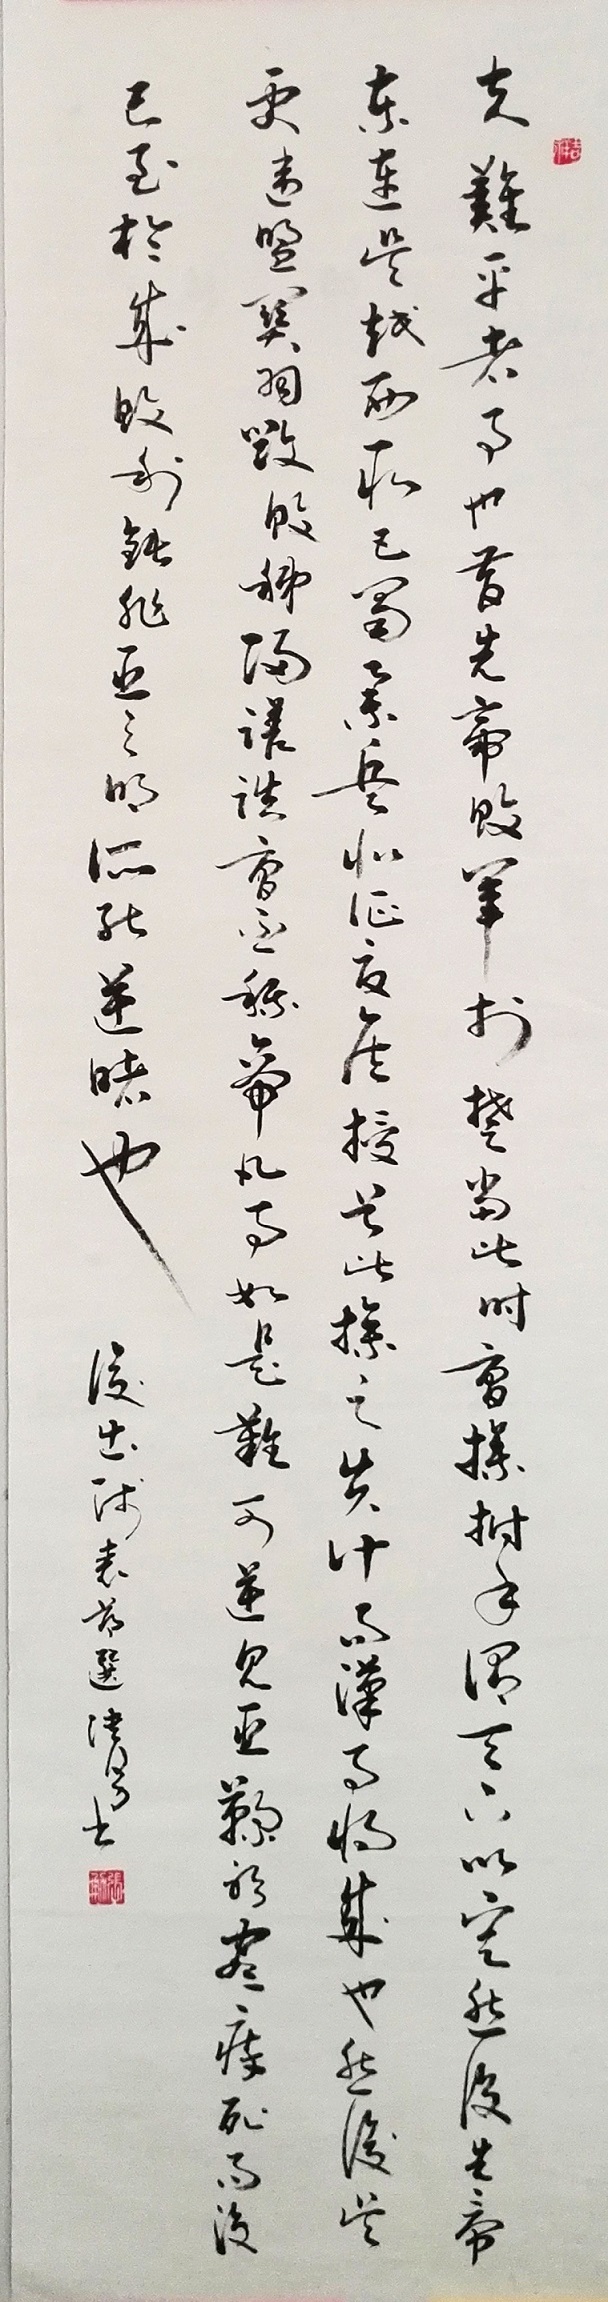 夫難平者事也昔先帝敗軍於楚當此時曹操拊手謂天下以定然後先帝
東連吳越西取巴蜀舉兵北征夏侯授首此操之失計而漢事將成也然後吳
更違盟關羽毀敗秭歸蹉跌曹丕稱帝凡事如是難可逆見臣鞠躬盡瘁死而後
已至於成敗利鈍非臣之明所能逆睹也
後出師表節選 張書